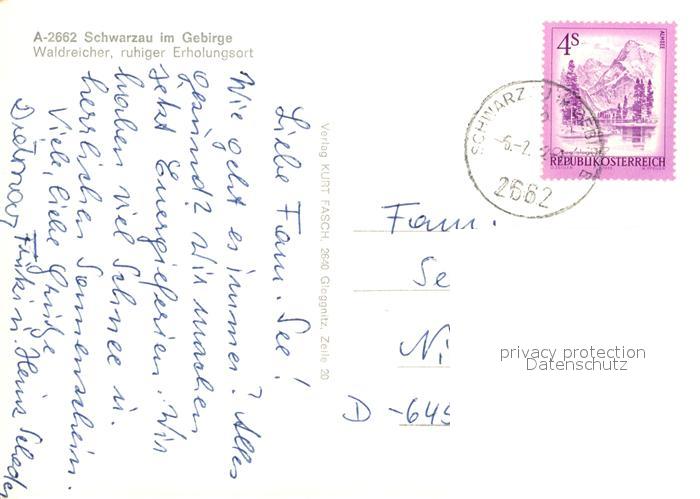 A-2662 Schwarzau im Gebirge
Waldreicher, ruhiger Erholungsort
Liebe Fam. See!
Wie geht es immer? Alles
gesund? Wir machen
jetzt Energieferien. Wir
haben viel Schnee u.
herrlichen Sonnenschein.
Viele, liebe Grüße
Dietmar, u. Heinz
Verlag KURT FASCH, 2640 Gloggnitz, Zeile 20
4 S
ALMSEE
REPUBLIK ÖSTERREICH
SCHWARZAU
2662
Fam.
Se
Ni
D -645
privacy protection
Datenschutz